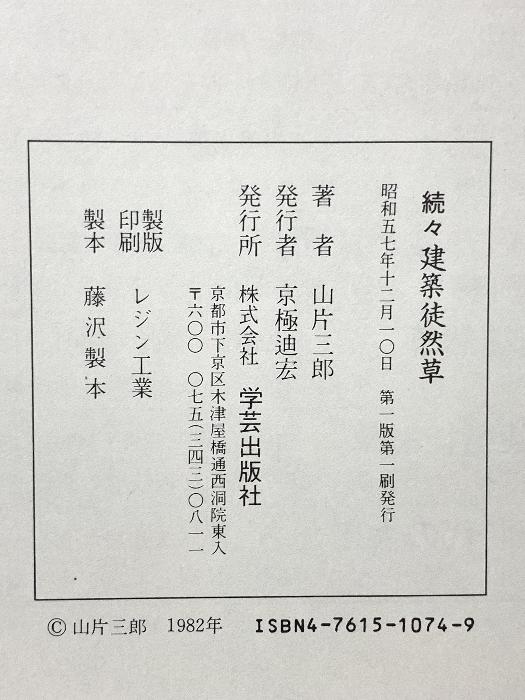 続々建築徒然草
昭和五七年十二月一〇日　第一版第一刷発行
著者　山片三郎
発行者　京極迪宏
発行所　株式会社　学芸出版社
京都市下京区木津屋橋通西洞院東入
〒六〇〇　〇七五(三四三)〇八一一
製版
印刷　レジン工業
製本　藤沢製本
© 山片三郎　1982年　ISBN4-7615-1074-9